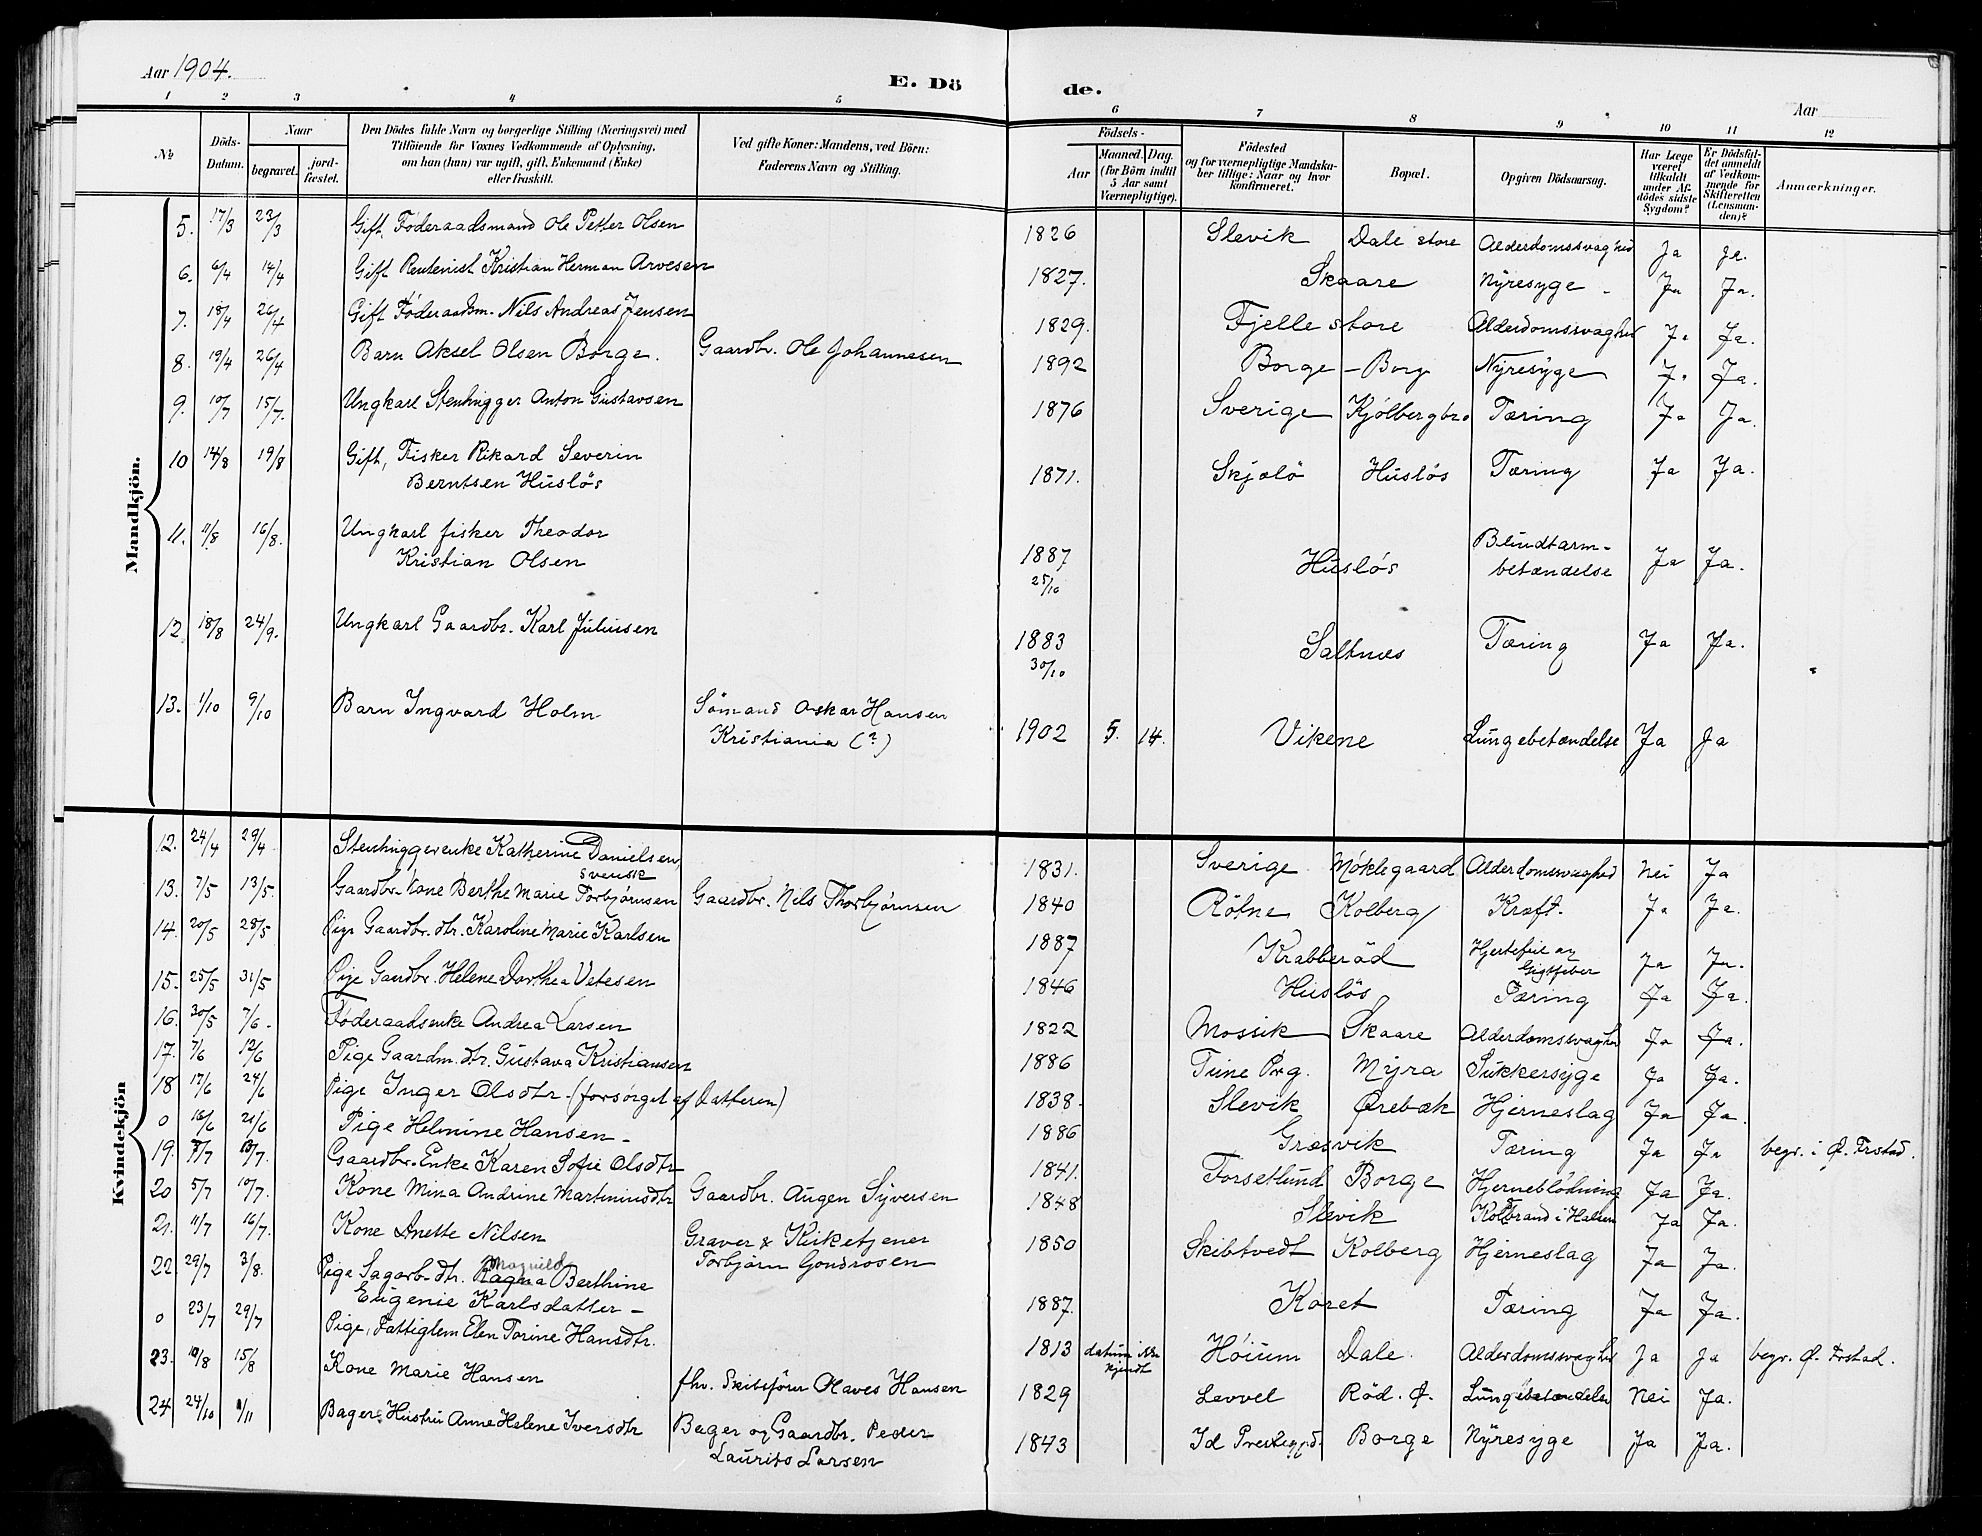 Aar 1904.
E. Dö
de.
Aar
1 2 3 4 5 6 7 8 9 10 11 12
№
Döds-Datum.
Naar
begravet.
jord-fæstet.
Den Dödes fulde Navn og borgerlige Stilling (Næringsvei) med
Tilföiende for Voxnes Vedkommende af Oplysning,
om han (hun) var ugift, gift, Enkemand (Enke)
eller fraskilt.
Ved gifte Koner: Mandens, ved Börn:
Faderens Navn og Stilling.
Födsels-
Aar
Maaned. Dag.
(for Börn indtil
5 Aar samt
Værnepligtige).
Födested
og for værnepligtige Mandska-
ber tillige: Naar og hvor
konfirmeret.
Bopæl.
Opgiven Dödsaarsag.
Har Læge
været
tilkaldt
under Af-
dödes sidste
Sygdom?
Er Dödsfal-
det anmeldt
af Vedkom-
mende for
Skifteretten
(Lensman-
den)?
Anmærkninger.
Mandkjön.
5. 17/3 23/3 Gift, Føderaadsmand Ole Petter Olsen 1826 Slevik Dale store Alderdomssvaghed Ja Ja.
6. 6/4 14/4 Gift Rentenist Kristian Herman Arvesen 1827. Skaare Nyresyge - Ja Ja.
7. 18/4 26/4 Gift Føderaadsm. Nils Andreas Jensen 1829. Fjelle store Alderdomssvaghed Ja Ja.
8. 19/4 26/4 Barn Aksel Olsen Borge. Gaardbr. Ole Johannesen 1892 Borge - Borg Nyresyge Ja Ja.
9. 10/7 15/7. Ungkarl Stenhugger Anton Gustavsen 1876 Sverige Kjölbergbro Tæring Ja Ja.
10 14/8 19/8 Gift, Fisker Rikard Severin
Berntsen Husløs 1871. Skjælö Husløs Tæring Ja Ja.
11. 11/8 16/8. Ungkarl fisker Theodor
Kristian Olsen 1887 25/10 Husløs Blindtarm-
betændelse Ja Ja.
12 18/8 24/9. Ungkarl Gaardbr. Karl Juliusen 1883 30/10 Saltnæs Tæring Ja Ja.
13. 1/10 9/10 Barn Ingvard Holm Sømand Oskar Hansen
Kristiania (?) 1902 5. 14. Vikene Lungebetændelse Ja Ja
Kvindekjön
12. 24/4 29/4 Stenhuggerenke Katherine Danielsen,
svensk 1831. Sverige Møklegaard Alderdomssvaghed Nei Ja
13. 7/5 13/5. Gaardbr. Kone Berthe Marie Torbjørnsen Gaardbr. Nils Thorbjørnsen 1840 Rötne Kolberg Kræft. Ja Ja.
14. 20/5 28/5 Pige Gaardbr. dtr. Karoline Marie Karlsen 1887 Krabberød Hjertefeil og
Gigtfeber Ja Ja.
15. 25/5 31/5 Pige Gaardbr. Helene Dorthea Vetesen 1846 Husløs Tæring Ja Ja.
16. 30/5 7/6. Føderaadsenke Andrea Larsen 1822 Mossik Skaare Alderdomssvaghed Ja Ja.
17. 7/6 12/6 Pige Gaardm. dtr. Gustava Kristiansen 1886 Tune Prg. Myra Sukkersyge Ja Ja.
18 17/6 24/6 Pige Inger Olsdtr. (forsørget af Datteren) 1838. Slevik Ørebæk Hjerneslag Ja Ja.
0 16/6 21/6 Pige Helmine Hansen - 1886 Græsvik Tæring Ja Ja begr. i Ø. Frstad.
19. 7/7 13/7. Gaardbr. Enke Karen Sofie Olsdtr 1841. Forsetlund Borge Hjerneblödning Ja Ja.
20 5/7 10/7. Kone Mina Andrine Martiniusdtr Gaardbr. Augen Syversen 1848 Slevik Koldbrand i Halsen Ja Ja.
21. 11/7 16/7. Kone Anette Nilsen Graver & Kirketjener
Torbjørn Gondrosen 1850 Skibtvedt Kolberg Hjerneslag Ja Ja.
22 29/7 3/8. Pige Sagarb. dtr. Ragna Magnild Berthine
Eugenie Karlsdatter - 1887. Koret Tæring Ja Ja.
0 23/7 29/7 Pige, Fattiglem Elen Torine Hansdtr. 1813 datum ikke
kjendt Høium Dale. Alderdomssvaghed Ja Ja begr. Ø. Frstad.
23. 10/8 15/8 Kone Marie Hansen fhv. Skibsfører Olaves Hansen 1829 Levvel Rød. Ø. Lungebetændelse Nei Ja.
24 24/10 1/11 Bager Hustru Anne Helene Iversdtr Bager og Gaardbr. Peder
Laurits Larsen 1843 Id Prestegjd. Borge Nyresyge Ja Ja.